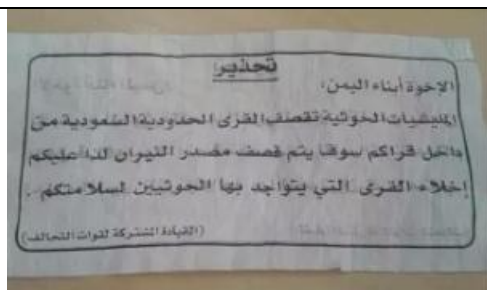 تحذير
الإخوة أبناء اليمن،
المليشيات الحوثية تقصف القرى الحدودية السعودية من
داخل قراكم سوفا يتم قصف مصدر النيران لذا عليكم
إخلاء القرى التي يتواجد بها الحوثيين لسلامتكم .
(القيادة المشتركة لقوات التحالف)